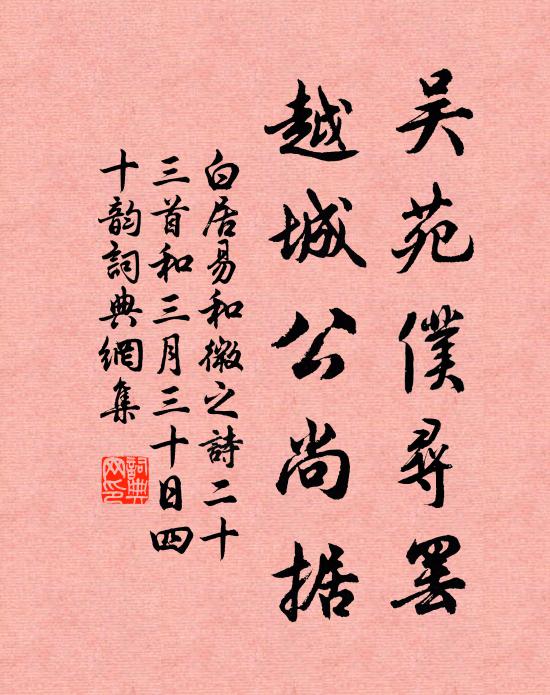 吴苑僕尋罷
越城公尚据
白居易和微之詩二十
三首和三月三十日四
十韵詞典網集
詞典网印